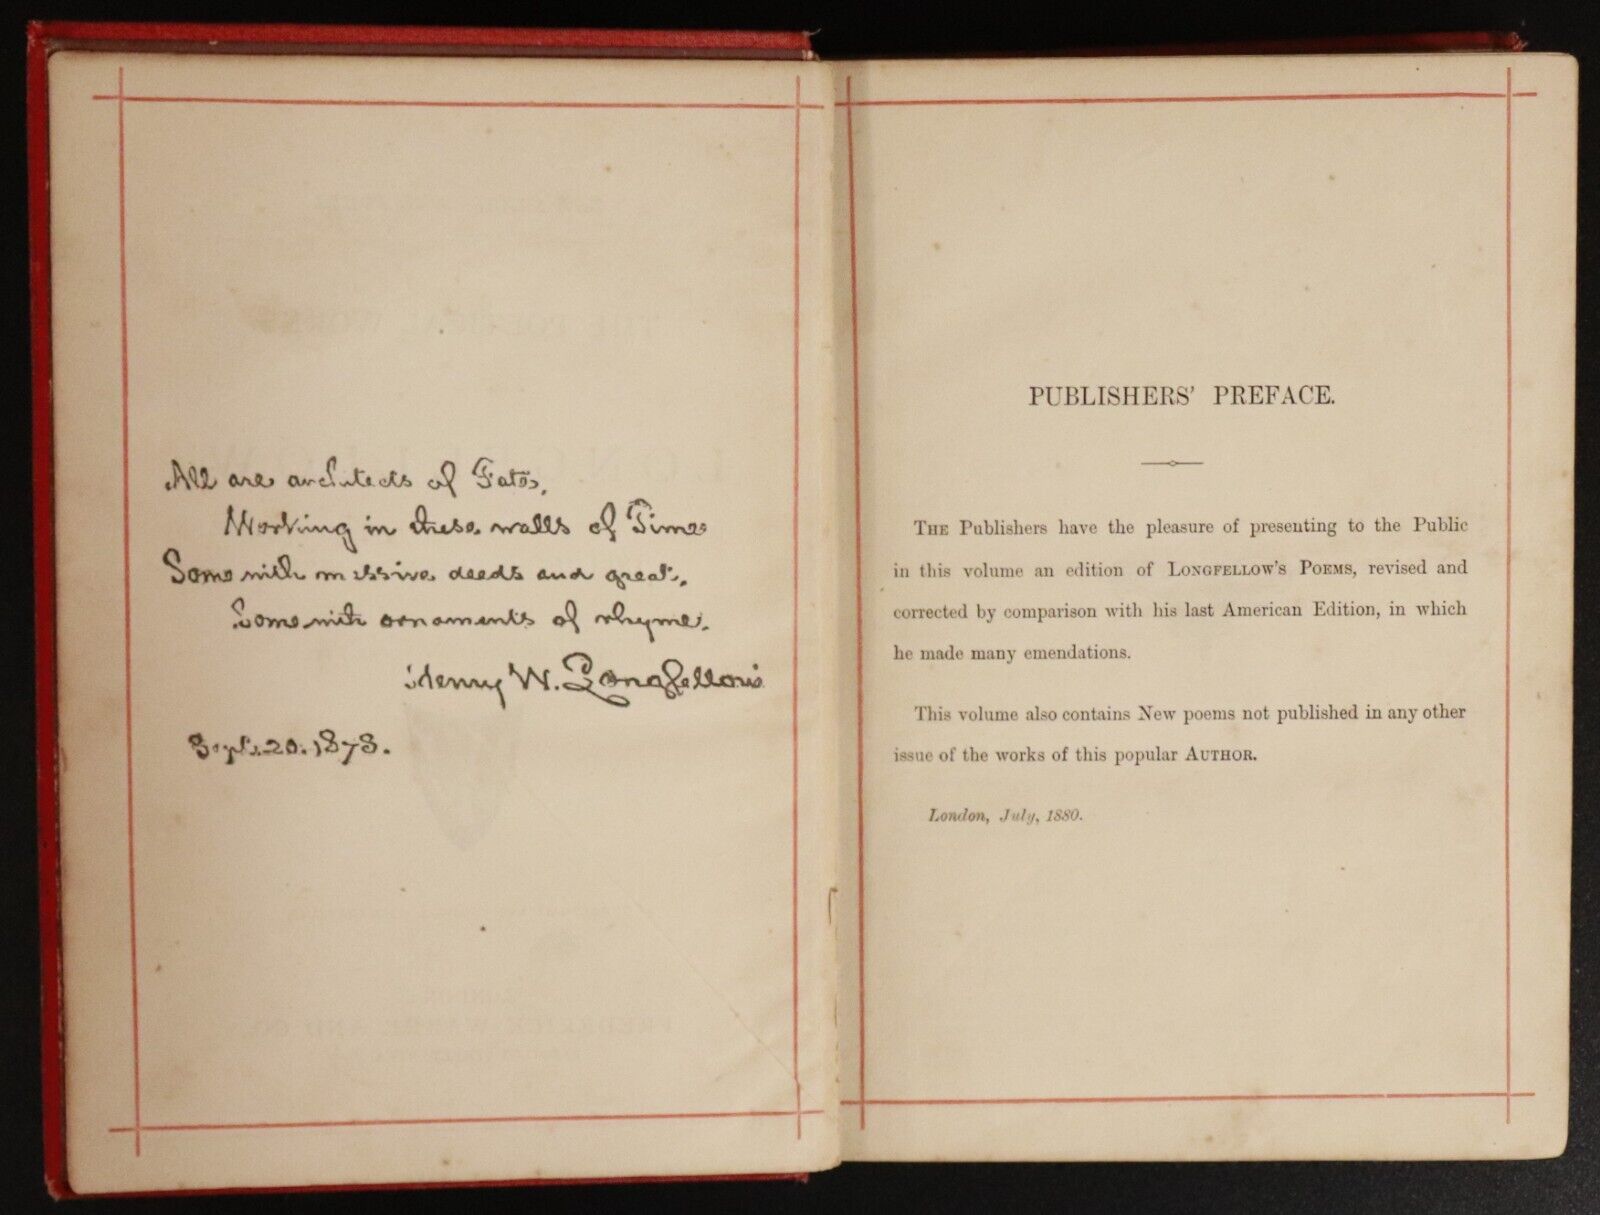 All are architects of Fate,
Working in these walls of Time
Some with massive deeds and great,
Some with ornaments of rhyme.
Henry W. Longfellow
Sept. 20. 1878.
PUBLISHERS' PREFACE.
THE Publishers have the pleasure of presenting to the Public
in this volume an edition of LONGFELLOW'S POEMS, revised and
corrected by comparison with his last American Edition, in which
he made many emendations.
This volume also contains New poems not published in any other
issue of the works of this popular AUTHOR.
London, July, 1880.